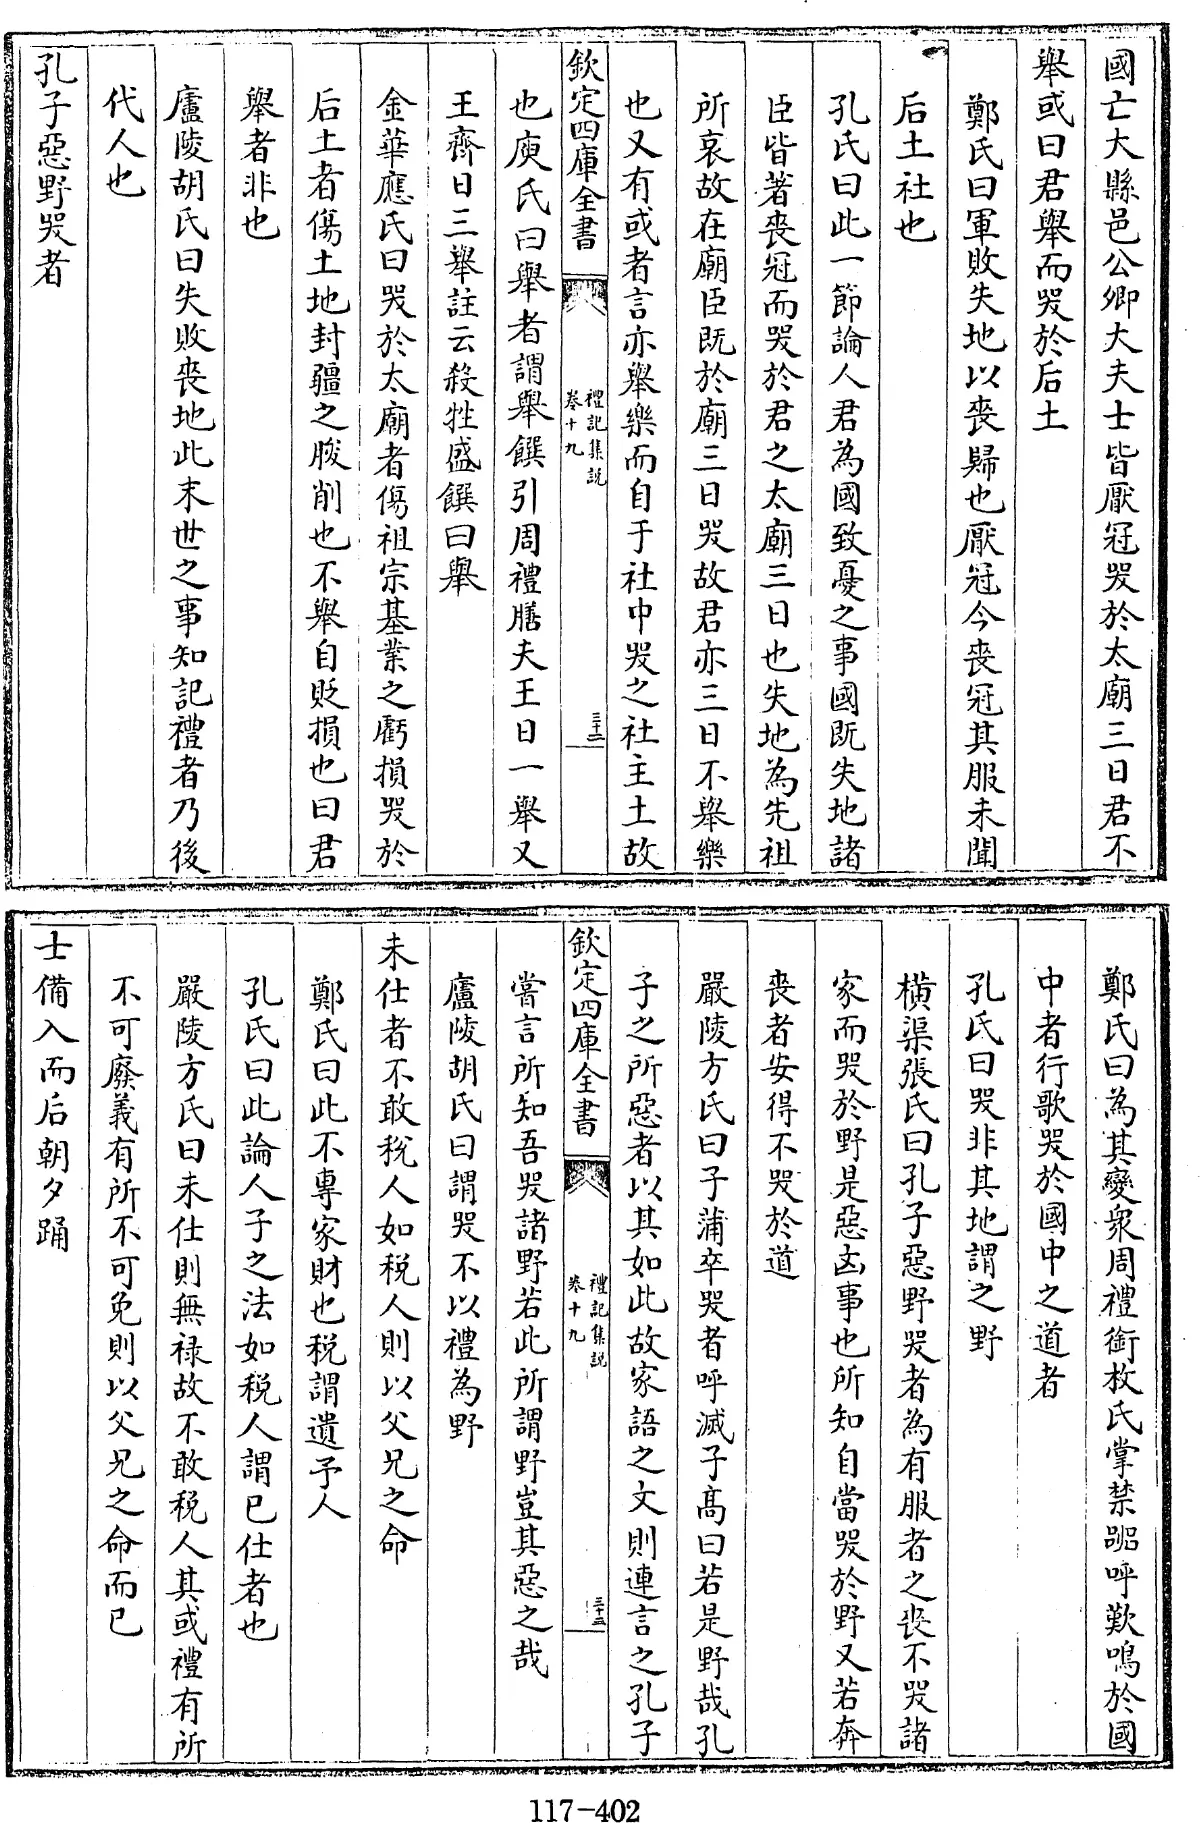 國亡大縣邑公卿大夫士皆厭冠哭於太廟三日君不
舉或曰君舉而哭於后土
鄭氏曰軍敗失地以喪歸也厭冠今喪冠其服未聞
后土社也
孔氏曰此一節論人君為國致憂之事國既失地諸
臣皆著喪冠而哭於君之太廟三日也失地為先祖
所哀故在廟臣既於廟三日哭故君亦三日不舉樂
也又有或者言亦舉樂而自于社中哭之社主土故
欽定四庫全書
禮記集說
卷十九
三十二
也庾氏曰舉者謂舉饌引周禮膳夫王日一舉又
王齊日三舉註云殺牲盛饌曰舉
金華應氏曰哭於太廟者傷祖宗基業之虧損哭於
后土者傷土地封疆之朘削也不舉自貶損也曰君
舉者非也
廬陵胡氏曰失敗喪地此末世之事知記禮者乃後
代人也
孔子惡野哭者
鄭氏曰為其變衆周禮銜枚氏掌禁嘂呼歎鳴於國
中者行歌哭於國中之道者
孔氏曰哭非其地謂之野
橫渠張氏曰孔子惡野哭者為有服者之喪不哭諸
家而哭於野是惡凶事也所知自當哭於野又若奔
喪者安得不哭於道
嚴陵方氏曰子蒲卒哭者呼滅子髙曰若是野哉孔
子之所惡者以其如此故家語之文則連言之孔子
欽定四庫全書
禮記集說
卷十九
三十三
嘗言所知吾哭諸野若此所謂野豈其惡之哉
廬陵胡氏曰謂哭不以禮為野
未仕者不敢稅人如稅人則以父兄之命
鄭氏曰此不專家財也稅謂遺予人
孔氏曰此論人子之法如稅人謂已仕者也
嚴陵方氏曰未仕則無祿故不敢稅人其或禮有所
不可廢義有所不可免則以父兄之命而已
士備入而后朝夕踊
117-402